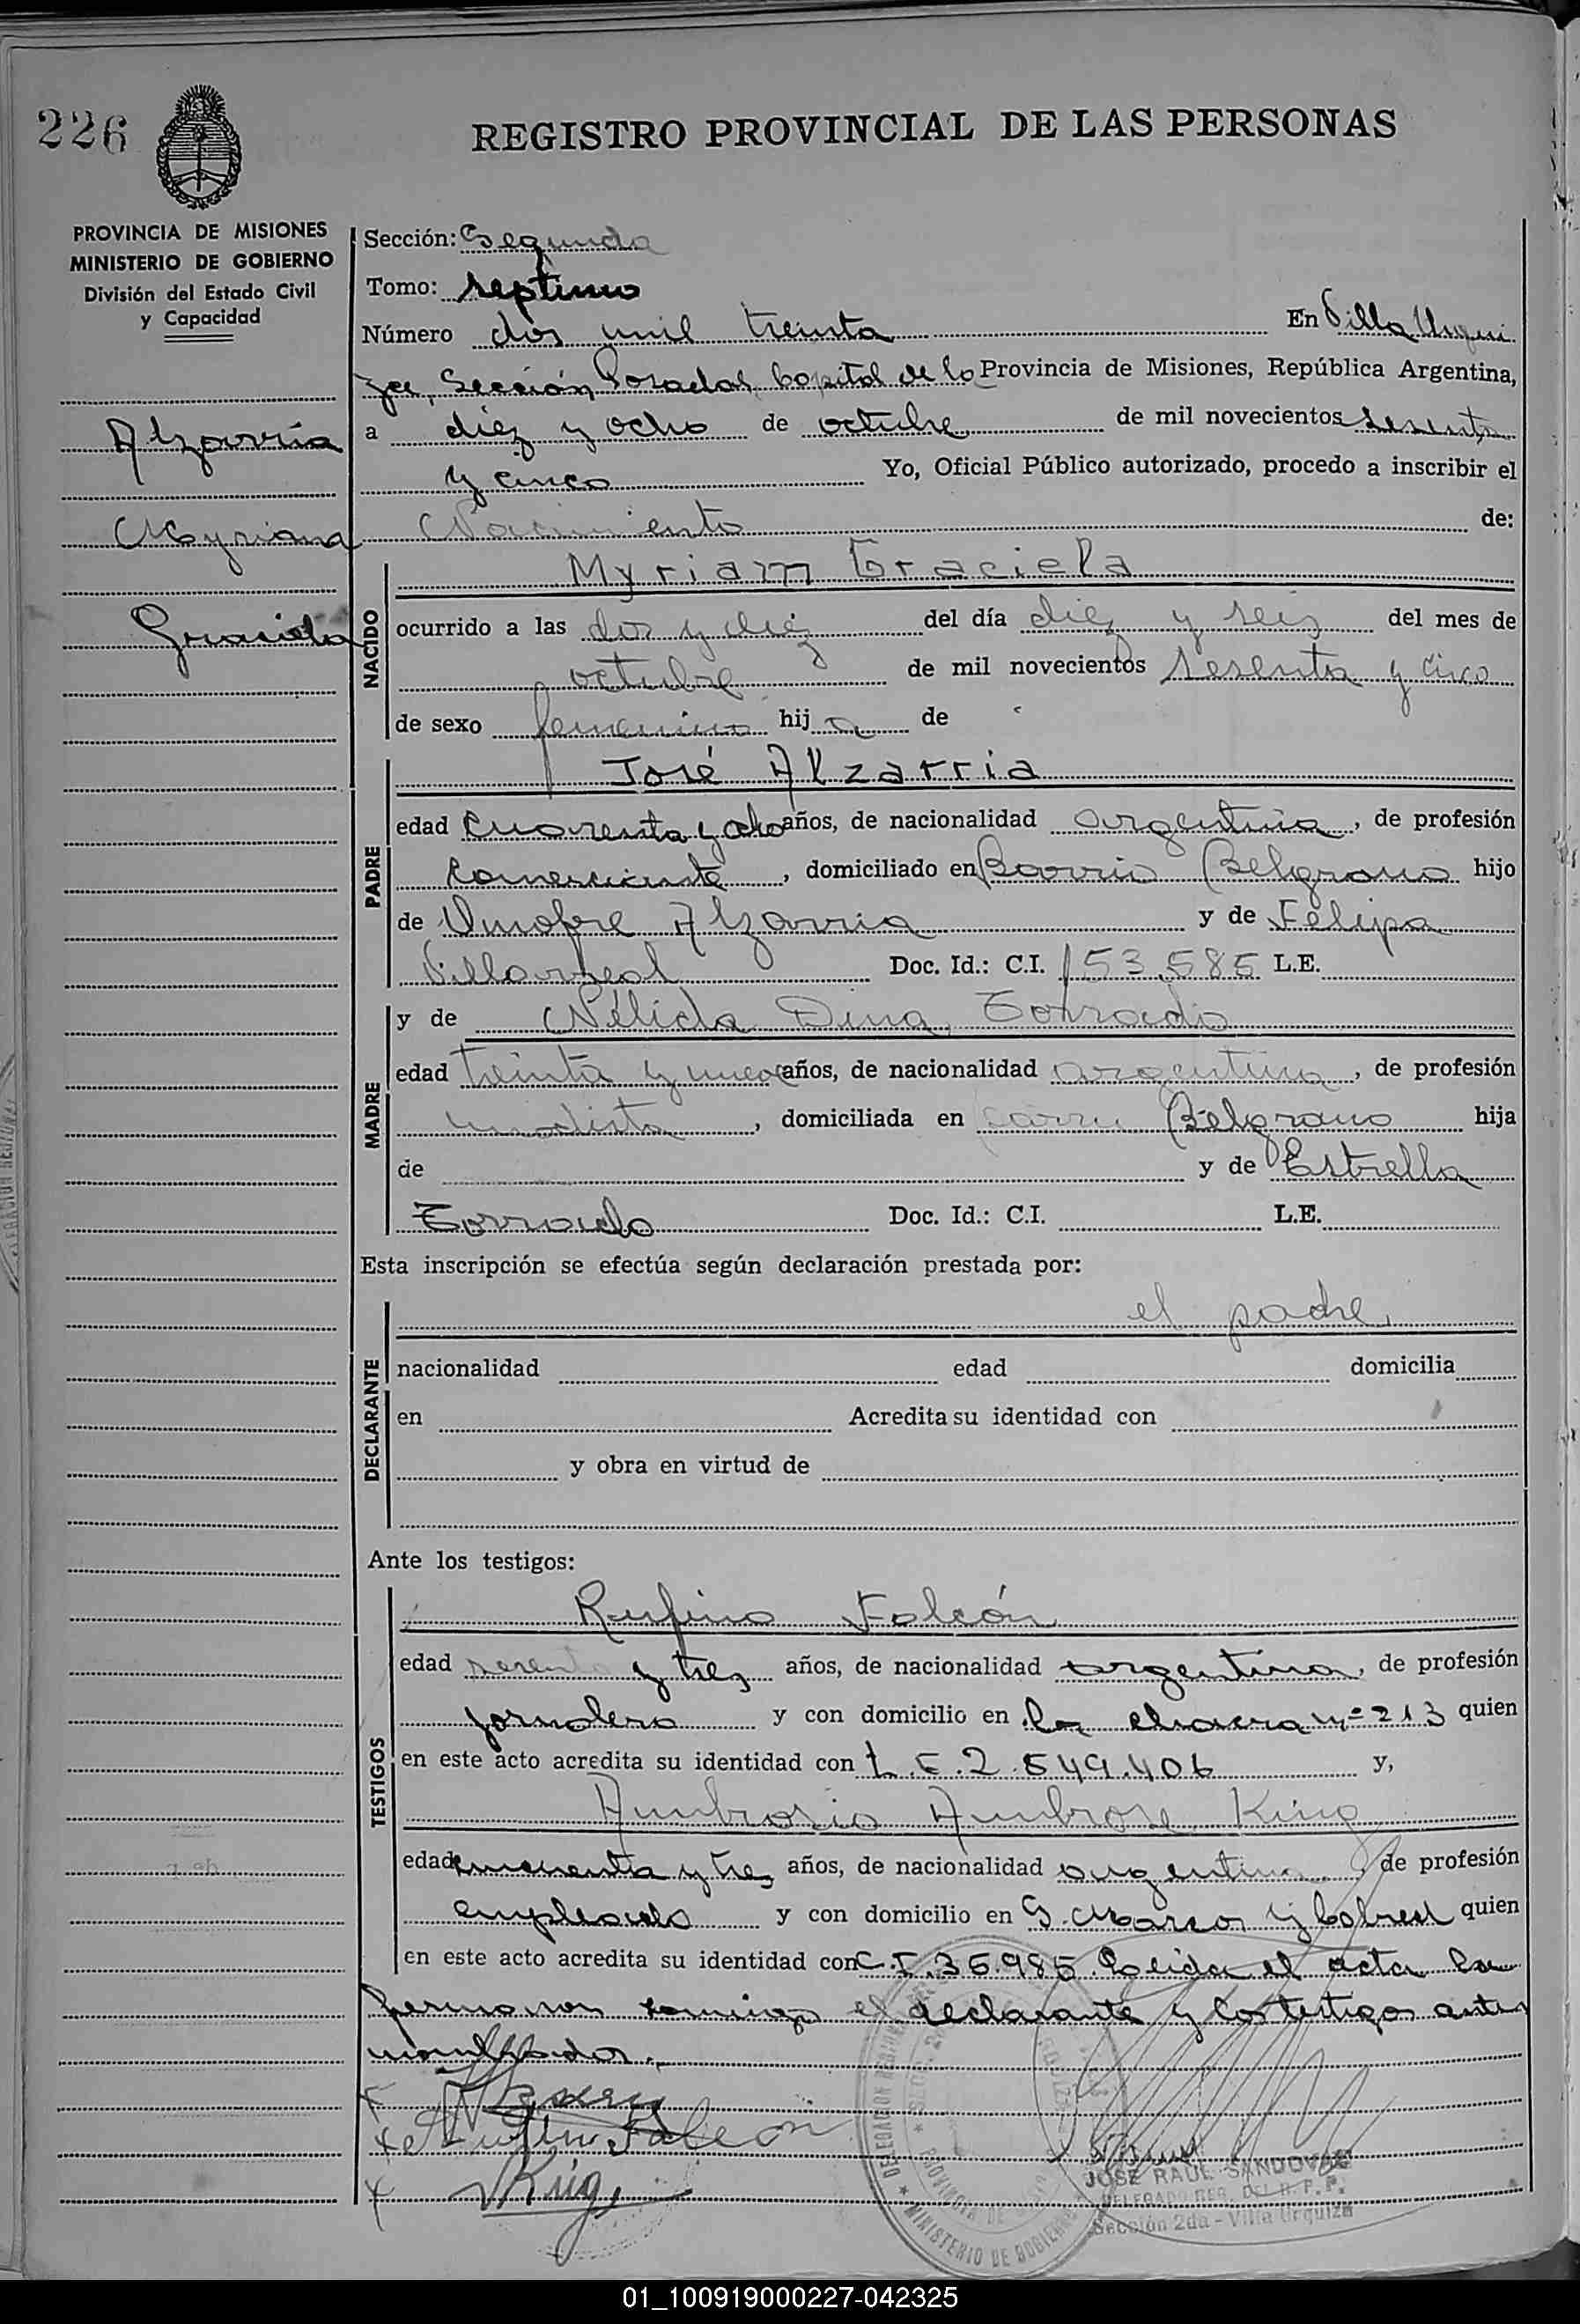 226
REGISTRO PROVINCIAL DE LAS PERSONAS
PROVINCIA DE MISIONES
MINISTERIO DE GOBIERNO
División del Estado Civil
y Capacidad
Alzarría
Myriana
Graciela
Sección: Segunda
Tomo: septimo
Número dos mil treinta En Villa Urqui
za, Sección Posadas, Capital de la Provincia de Misiones, República Argentina,
a diez y ocho de octubre de mil novecientos sesenta
y cinco Yo, Oficial Público autorizado, procedo a inscribir el
Nacimiento de:
NACIDO
Myriam Graciela
ocurrido a las dos y diez del día diez y seis del mes de
octubre de mil novecientos sesenta y cinco
de sexo femenino hija de
PADRE
José Alzarria
edad cuarenta y ocho años, de nacionalidad argentina, de profesión
comerciante, domiciliado en Barrio Belgrano hijo
de Onofre Alzarria y de Felipa
Villarreal Doc. Id.: C.I. 153.585 L.E.
MADRE
y de Nélida Dina Torrado
edad treinta y nueve años, de nacionalidad argentina, de profesión
modista, domiciliada en barrio Belgrano hija
de y de Estrella
Torrado Doc. Id.: C.I. L.E.
Esta inscripción se efectúa según declaración prestada por:
DECLARANTE
el padre
nacionalidad edad domicilia
en Acredita su identidad con
y obra en virtud de
Ante los testigos:
TESTIGOS
Rufino Falcón
edad sesenta y tres años, de nacionalidad argentina, de profesión
jornalero y con domicilio en la chacra nº 213 quien
en este acto acredita su identidad con L.E. 2.549.406 y,
Ambrosio Ambrose King
edad cincuenta y tres años, de nacionalidad argentina, de profesión
empleado y con domicilio en S. Marcos y Cabred quien
en este acto acredita su identidad con C.I. 36.985. Leida el acta la
firman conmigo el declarante y los testigos antes
mencionados.
x Alzarria
x Rufino Falcon
x King
DELEGACION REGIONAL
PROVINCIA DE
MINISTERIO DE GOBIERNO
JOSE RAUL SANDOVAL
DELEGADO REG. DEL R. P. P.
Sección 2da - Villa Urquiza
01_100919000227-042325